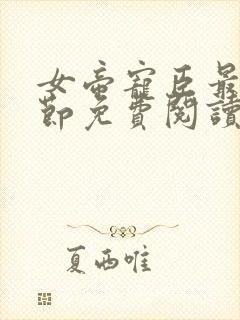 女帝寵臣最
節免費閱讀
夏西唯